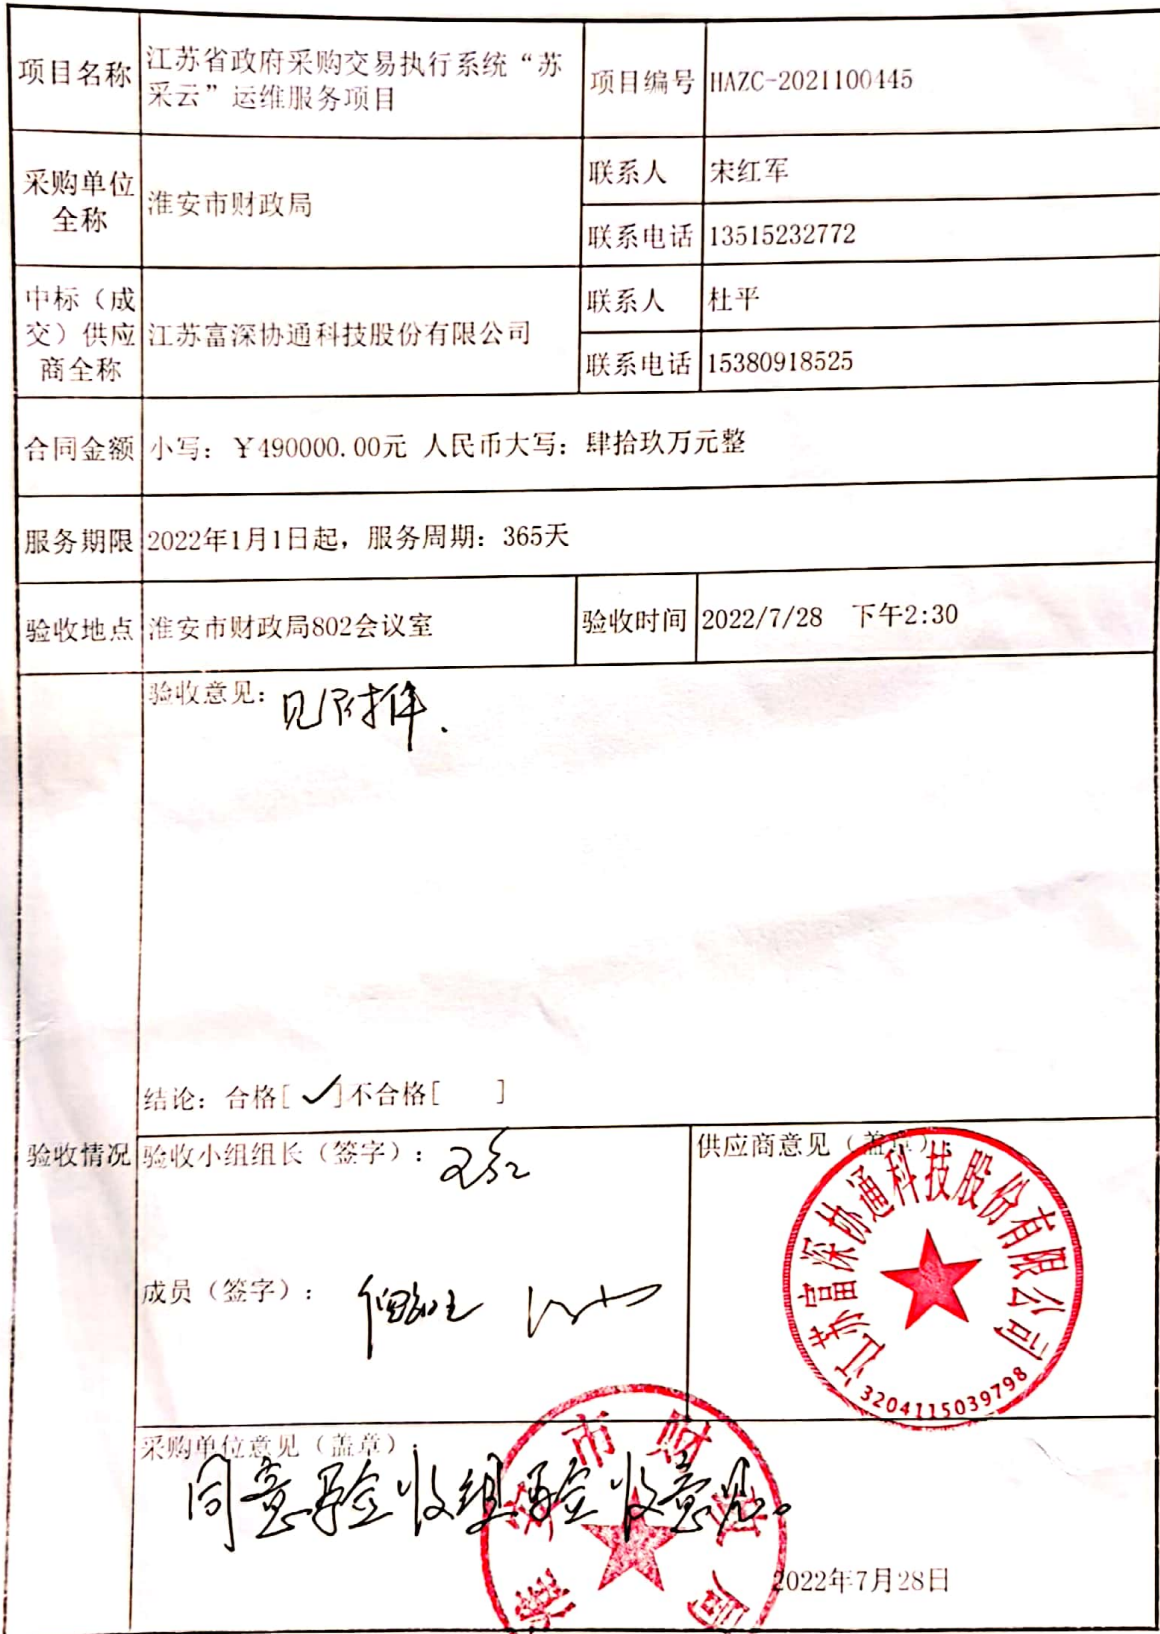 项目名称
江苏省政府采购交易执行系统“苏
采云”运维服务项目
项目编号
HAZC-2021100445
采购单位
全称
淮安市财政局
联系人
宋红军
联系电话
13515232772
中标（成
交）供应
商全称
江苏富深协通科技股份有限公司
联系人
杜平
联系电话
15380918525
合同金额
小写：￥490000.00元 人民币大写：肆拾玖万元整
服务期限
2022年1月1日起，服务周期：365天
验收地点
淮安市财政局802会议室
验收时间
2022/7/28 下午2:30
验收情况
验收意见：见附件.
结论：合格[✓]不合格[ ]
验收小组组长（签字）：
成员（签字）：
供应商意见（盖章）：
江苏富深协通科技股份有限公司
3204115039798
采购单位意见（盖章）
同意验收组验收意见。
淮安市财政局
2022年7月28日